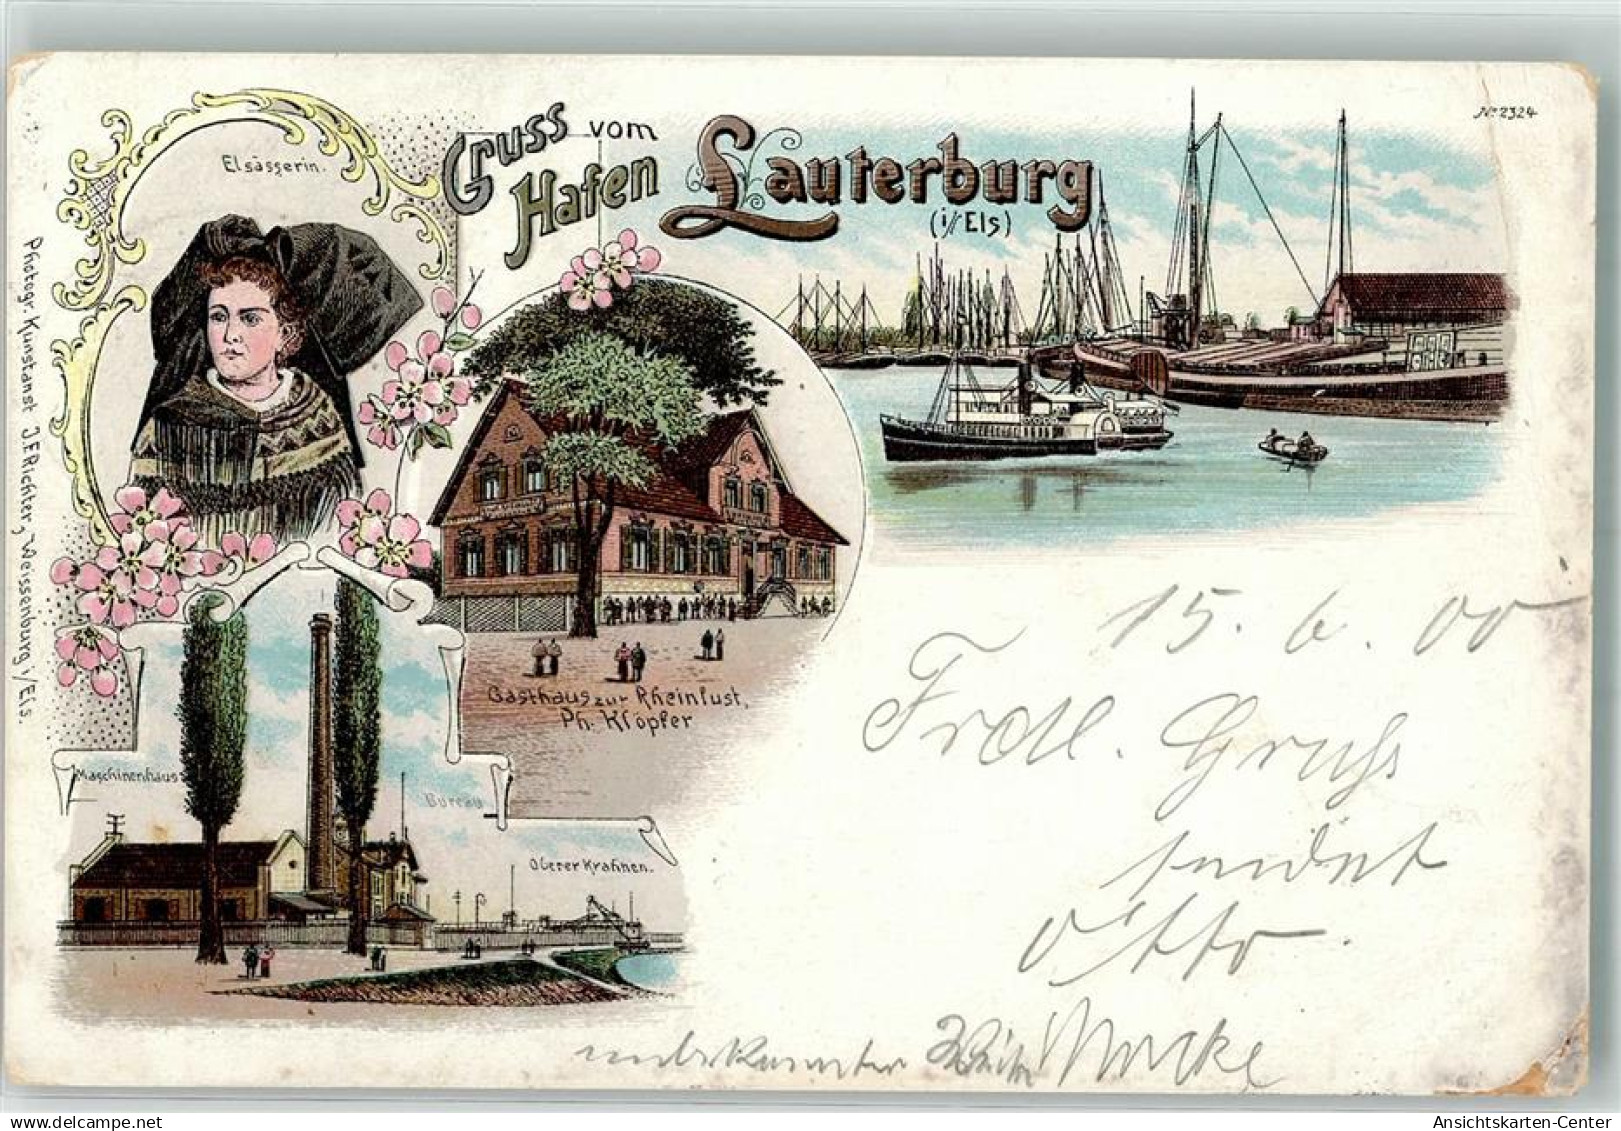 Nº 2324
Gruss vom
Hafen Lauterburg
(i/Els)
Elsässerin.
Photogr. Kunstanst J.F. Richter, Weissenburg i/Els.
Gasthaus zur Rheinlust,
Ph. Klöpfer
Maschinenhaus
Bureau
Oberer Krahnen.
15. 6. 00
Frdl. Gruß
sendet
Otto
unbekannter
Ansichtskarten-Center